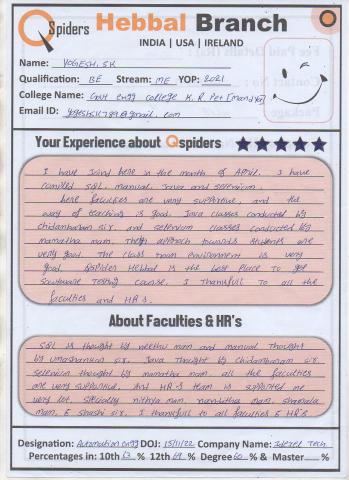 QSpiders Hebbal Branch
INDIA | USA | IRELAND
Name: YOGESH. S.K
Qualification: BE Stream: ME YOP: 2021
College Name: Govt engg college K. R. Pet [mandya]
Email ID: yogeshsk789@gmail.com
Your Experience about Qspiders
I have Joind here in the month of April. I have
complled SQL, manual, Java and selenium.
here faculties are very supportive, and the
way of teaching is good. Java classes conducted by
chidambaram sir. and selenium classes conducted by
mamatha mam. Their approch towards students are
very good. The class room environment is very
good. QSpider Hebbal is the best place to get
Software Testing cource. I thankfull to all the
faculties and HR's.
About Faculties & HR's
SQL is thought by neethu mam and manual Thought
by umashankar sir. Java Thought by Chidambaram sir.
Selenium thought by mamatha mam. all the faculties
are very supportive. And HR's team is supported me
very lot. specially nithya mam, namitha mam, sharmila
mam, & shashi sir. I thankfull to all faculties & HR's
Designation: Automation engg DOJ: 15/11/22 Company Name: Tech
Percentages in: 10th 63 % 12th 69 % Degree 60 % & Master %